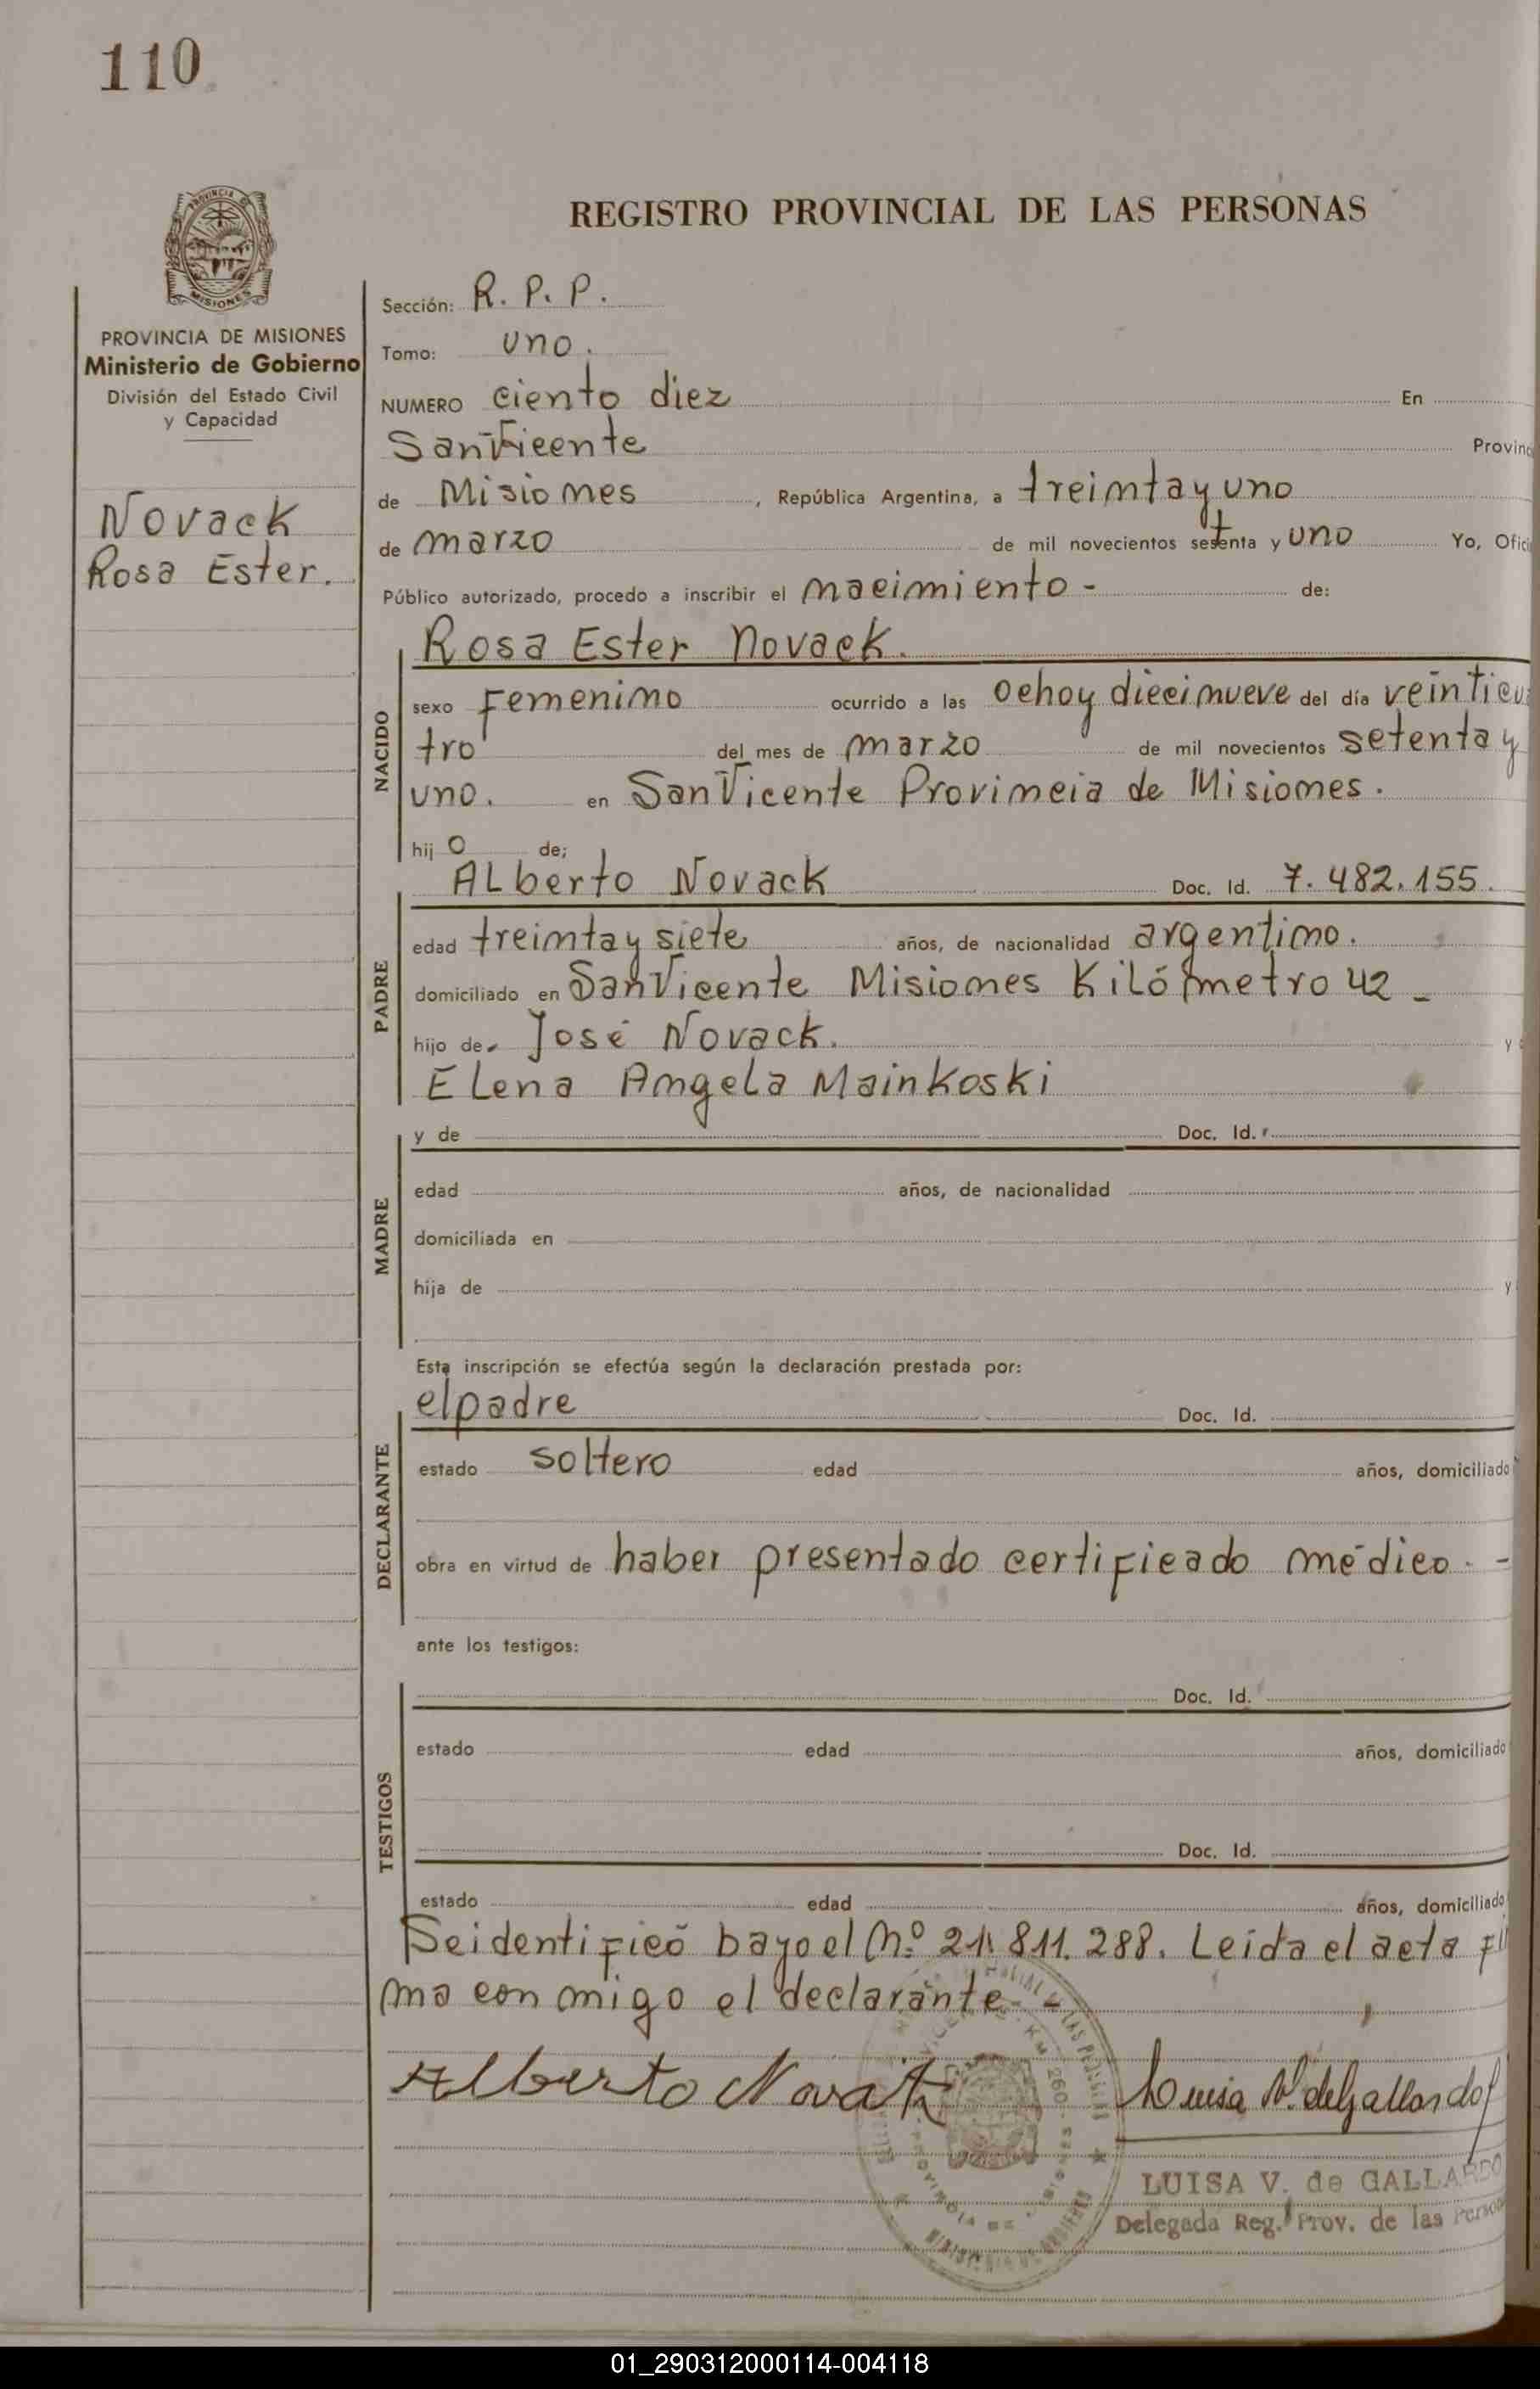 110
PROVINCIA
MISIONES
PROVINCIA DE MISIONES
Ministerio de Gobierno
División del Estado Civil
y Capacidad
Novack
Rosa Ester.
REGISTRO PROVINCIAL DE LAS PERSONAS
Sección: R. P. P.
Tomo: uno.
NUMERO ciento diez En
San Vicente Provinc
de Misiones, República Argentina, a treinta y uno
de marzo de mil novecientos setenta y uno Yo, Ofici
Público autorizado, procedo a inscribir el nacimiento - de:
Rosa Ester Novack.
NACIDO
sexo Femenino ocurrido a las ocho y diecinueve del día veinticua
tro del mes de marzo de mil novecientos setenta y
uno. en San Vicente Provincia de Misiones.
hij o de;
PADRE
Alberto Novack Doc. Id. 7.482.155.
edad treinta y siete años, de nacionalidad argentino.
domiciliado en San Vicente Misiones Kilómetro 42 -
hijo de José Novack. y
Elena Angela Mainkoski
MADRE
y de Doc. Id.
edad años, de nacionalidad
domiciliada en
hija de y
Esta inscripción se efectúa según la declaración prestada por:
DECLARANTE
el padre Doc. Id.
estado soltero edad años, domiciliado
obra en virtud de haber presentado certificado médico. -
ante los testigos:
TESTIGOS
Doc. Id.
estado edad años, domiciliado
Doc. Id.
estado edad años, domiciliado
Se identificó bayo el Nº 21.811.288. Leída el acta fir
ma con migo el declarante. -
Alberto Novack
Luisa V. de Gallardo
LUISA V. de GALLARDO
Delegada Reg. Prov. de las Person
01_290312000114-004118